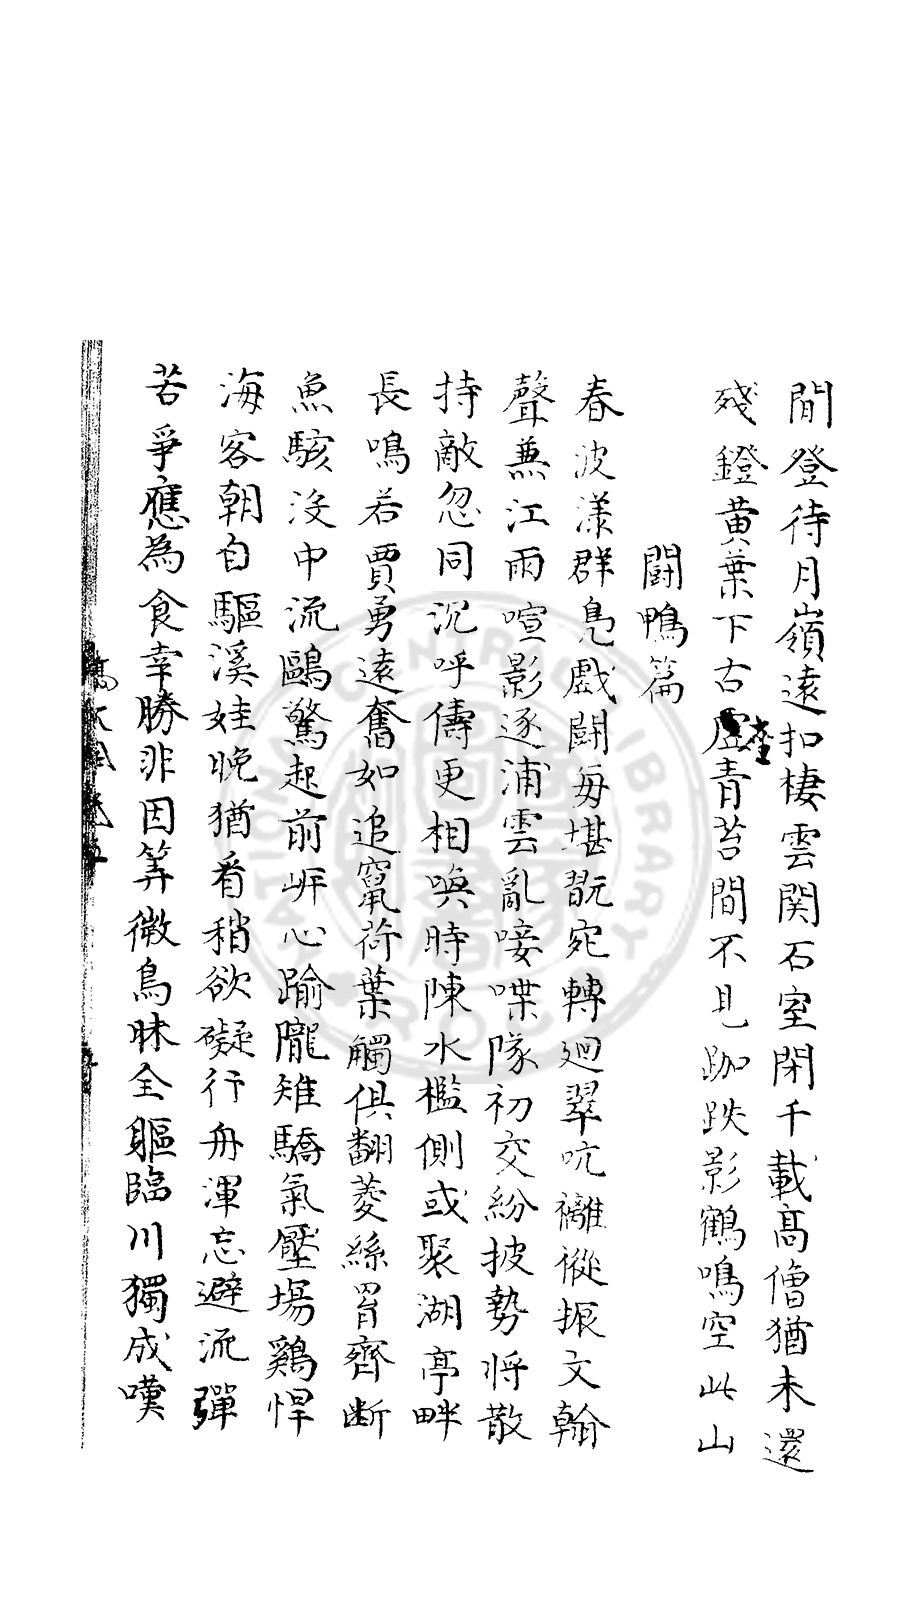 閒登待月嶺遠扣棲雲関石室閉千載髙僧猶未還
殘鐙黄葉下古虛臺青苔間不見跏趺影鶴鳴空此山
闘鴨篇
春波漾群鳧戲闘毎堪翫宛轉廻翠吭襹褷振文翰
聲兼江雨喧影逐浦雲亂唼喋隊初交紛披勢将散
持敵忽同沉呼儔更相喚時陳水檻側或聚湖亭畔
長鳴若賈勇遠奮如追竄荷葉觸俱翻菱絲罥齊断
魚駭没中流鷗驚起前岍心踰隴雉驕氣壓塲鷄悍
海客朝自驅溪娃晚猶看稍欲礙行舟渾忘避流彈
苦爭應為食幸勝非因筭微鳥昧全軀臨川獨成嘆
NATIONAL CENTRAL LIBRARY R.O.C.